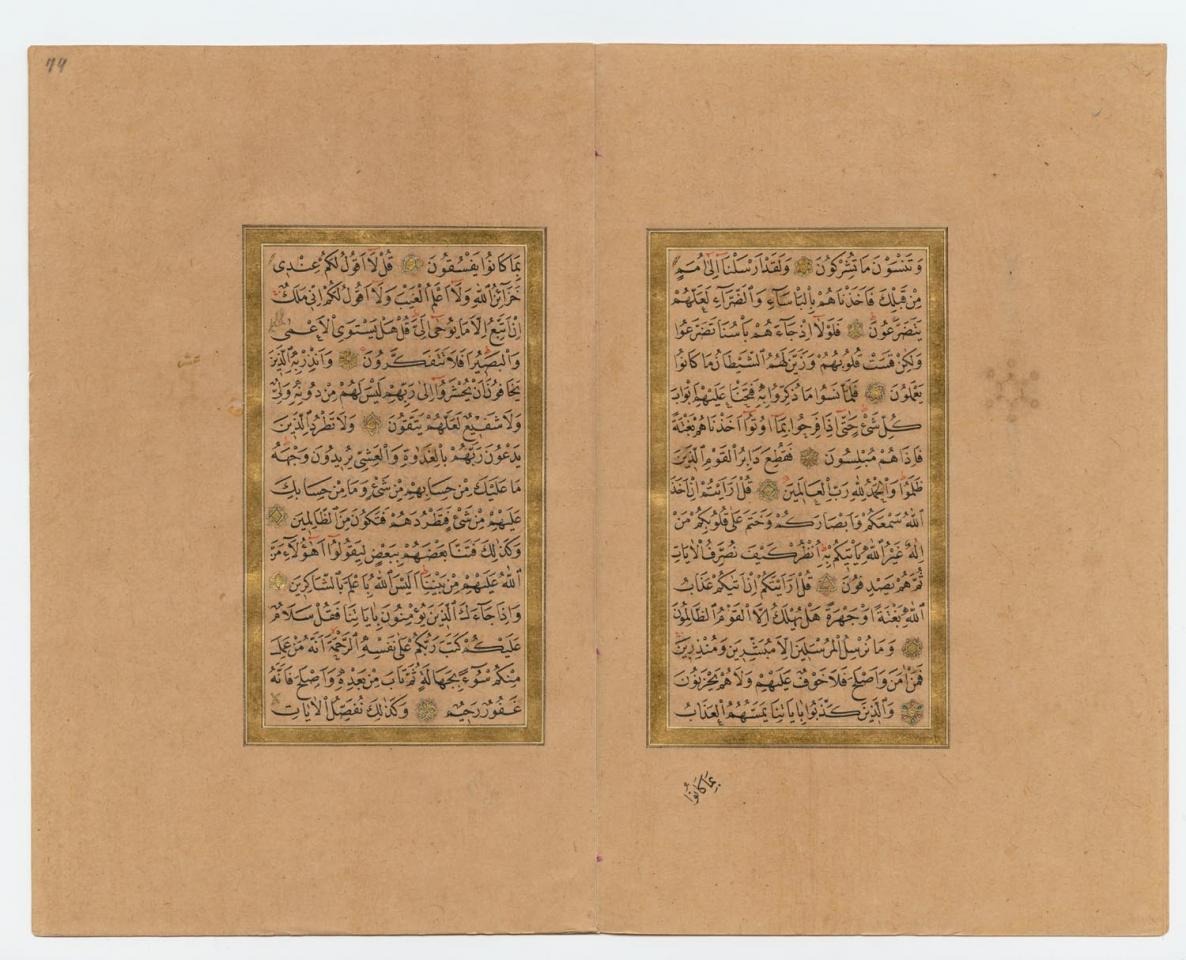 وَتَنْسَوْنَ مَا تُشْرِكُونَ وَلَقَدْ اَرْسَلْنَا اِلٰى اُمَمٍ
مِنْ قَبْلِكَ فَاَخَذْنَاهُمْ بِالْبَاْسَآءِ وَالضَّرَّآءِ لَعَلَّهُمْ
يَتَضَرَّعُونَ فَلَوْلَا اِذْ جَآءَهُمْ بَاْسُنَا تَضَرَّعُوا
وَلٰكِنْ قَسَتْ قُلُوبُهُمْ وَزَيَّنَ لَهُمُ الشَّيْطَانُ مَا كَانُوا
يَعْمَلُونَ فَلَمَّا نَسُوا مَا ذُكِّرُوا بِهِ فَتَحْنَا عَلَيْهِمْ اَبْوَابَ
كُلِّ شَيْءٍ حَتّٰى اِذَا فَرِحُوا بِمَا اُوتُوا اَخَذْنَاهُمْ بَغْتَةً
فَاِذَا هُمْ مُبْلِسُونَ فَقُطِعَ دَابِرُ الْقَوْمِ الَّذِينَ
ظَلَمُوا وَالْحَمْدُ لِلّٰهِ رَبِّ الْعَالَمِينَ قُلْ اَرَاَيْتُمْ اِنْ اَخَذَ
اللّٰهُ سَمْعَكُمْ وَاَبْصَارَكُمْ وَخَتَمَ عَلٰى قُلُوبِكُمْ مَنْ
اِلٰهٌ غَيْرُ اللّٰهِ يَاْتِيكُمْ بِهِ اُنْظُرْ كَيْفَ نُصَرِّفُ الْاٰيَاتِ
ثُمَّ هُمْ يَصْدِفُونَ قُلْ اَرَاَيْتَكُمْ اِنْ اَتٰيكُمْ عَذَابُ
اللّٰهِ بَغْتَةً اَوْ جَهْرَةً هَلْ يُهْلَكُ اِلَّا الْقَوْمُ الظَّالِمُونَ
وَمَا نُرْسِلُ الْمُرْسَلِينَ اِلَّا مُبَشِّرِينَ وَمُنْذِرِينَ
فَمَنْ اٰمَنَ وَاَصْلَحَ فَلَا خَوْفٌ عَلَيْهِمْ وَلَا هُمْ يَحْزَنُونَ
وَالَّذِينَ كَذَّبُوا بِاٰيَاتِنَا يَمَسُّهُمُ الْعَذَابُ
بِمَا كَانُوا
٧٩
بِمَا كَانُوا يَفْسُقُونَ قُلْ لَا اَقُولُ لَكُمْ عِنْدِي
خَزَآئِنُ اللّٰهِ وَلَا اَعْلَمُ الْغَيْبَ وَلَا اَقُولُ لَكُمْ اِنِّي مَلَكٌ
اِنْ اَتَّبِعُ اِلَّا مَا يُوحٰى اِلَيَّ قُلْ هَلْ يَسْتَوِي الْاَعْمٰى
وَالْبَصِيرُ اَفَلَا تَتَفَكَّرُونَ وَاَنْذِرْ بِهِ الَّذِينَ
يَخَافُونَ اَنْ يُحْشَرُوا اِلٰى رَبِّهِمْ لَيْسَ لَهُمْ مِنْ دُونِهِ وَلِيٌّ
وَلَا شَفِيعٌ لَعَلَّهُمْ يَتَّقُونَ وَلَا تَطْرُدِ الَّذِينَ
يَدْعُونَ رَبَّهُمْ بِالْغَدٰوةِ وَالْعَشِيِّ يُرِيدُونَ وَجْهَهُ
مَا عَلَيْكَ مِنْ حِسَابِهِمْ مِنْ شَيْءٍ وَمَا مِنْ حِسَابِكَ
عَلَيْهِمْ مِنْ شَيْءٍ فَتَطْرُدَهُمْ فَتَكُونَ مِنَ الظَّالِمِينَ
وَكَذٰلِكَ فَتَنَّا بَعْضَهُمْ بِبَعْضٍ لِيَقُولُوا اَهٰؤُلَآءِ مَنَّ
اللّٰهُ عَلَيْهِمْ مِنْ بَيْنِنَا اَلَيْسَ اللّٰهُ بِاَعْلَمَ بِالشَّاكِرِينَ
وَاِذَا جَآءَكَ الَّذِينَ يُؤْمِنُونَ بِاٰيَاتِنَا فَقُلْ سَلَامٌ
عَلَيْكُمْ كَتَبَ رَبُّكُمْ عَلٰى نَفْسِهِ الرَّحْمَةَ اَنَّهُ مَنْ عَمِلَ
مِنْكُمْ سُوٓءًا بِجَهَالَةٍ ثُمَّ تَابَ مِنْ بَعْدِهِ وَاَصْلَحَ فَاَنَّهُ
غَفُورٌ رَحِيمٌ وَكَذٰلِكَ نُفَصِّلُ الْاٰيَاتِ